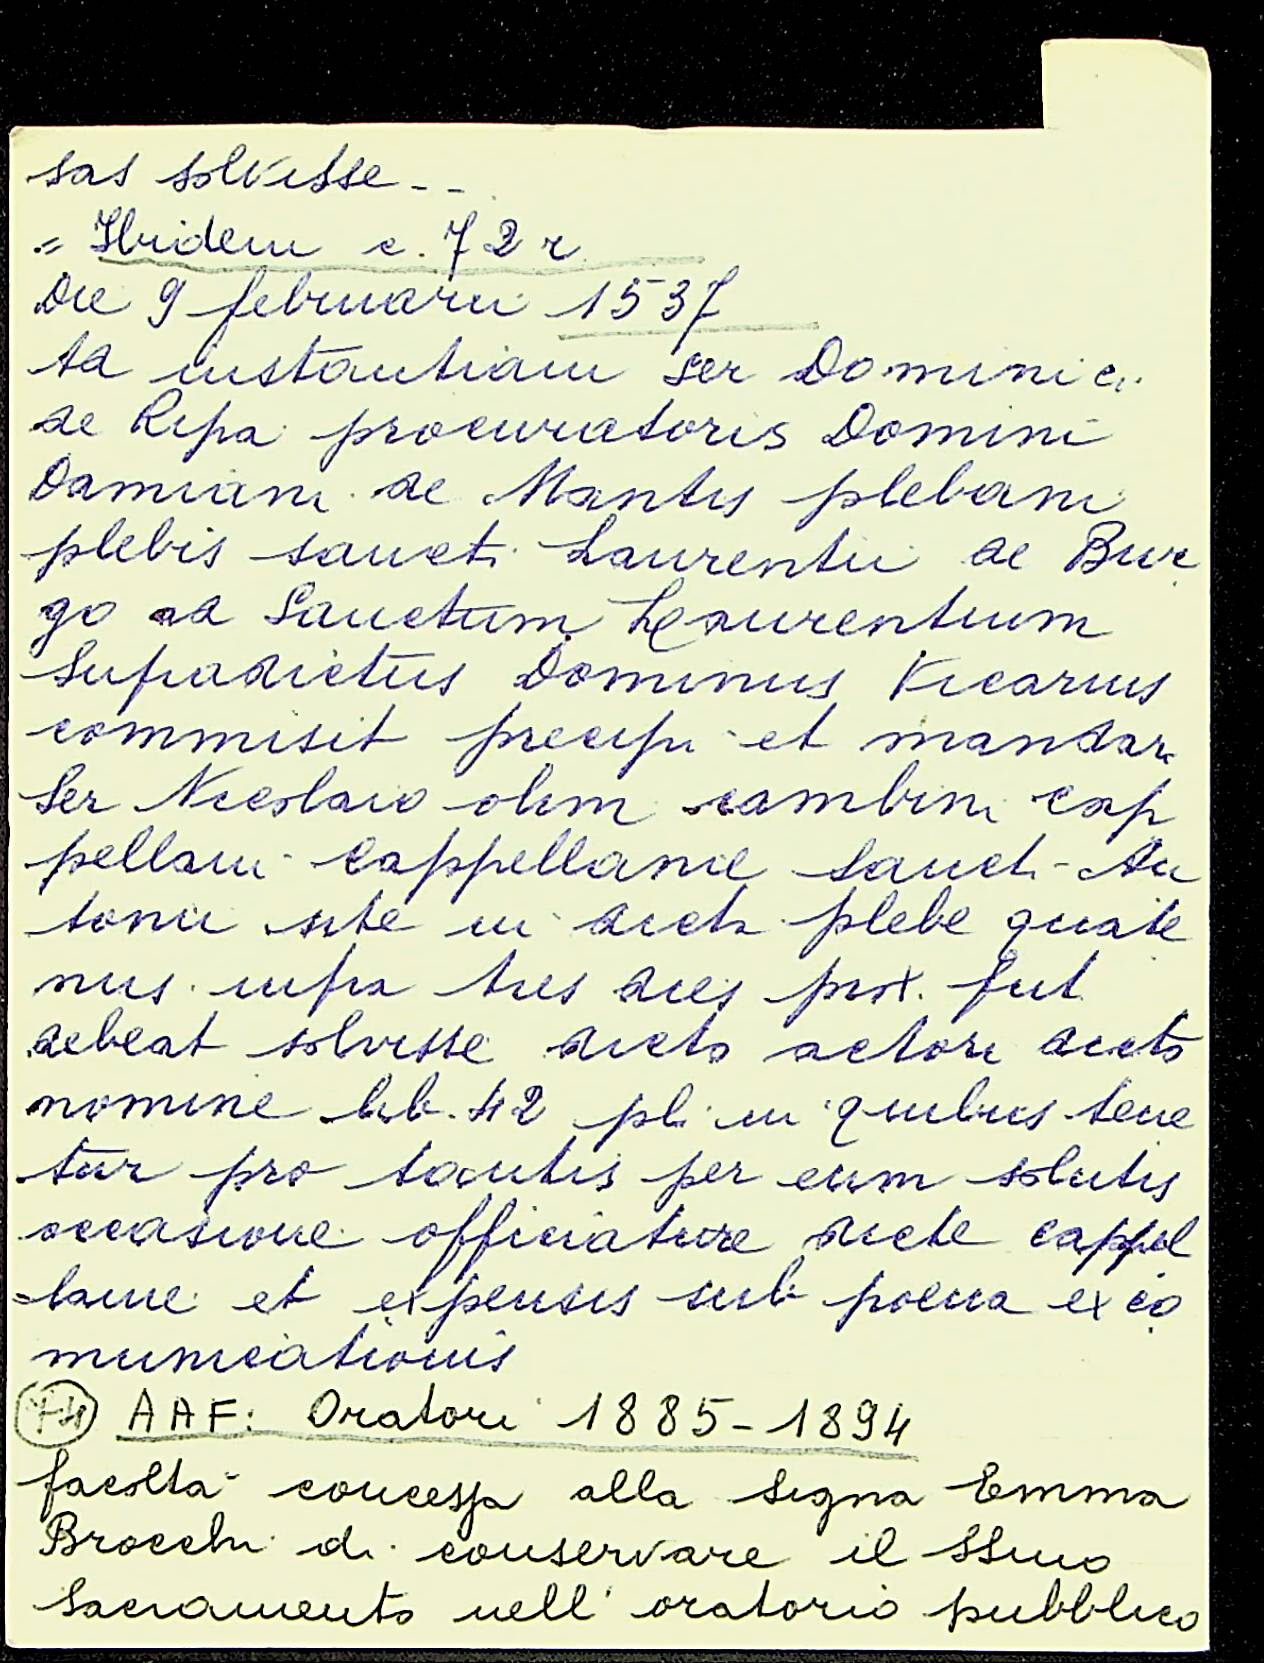 sas solvisse --
= Ibidem c. 72 r
Die 9 februarii 1537
Ad instantiam ser Dominici
de Ripa procuratoris Domini
Damiani de Mantis plebani
plebis sancti Laurentii de Bur
go ad Sanctum Laurentium
Supradictus Dominus Vicarius
commisit precipi et mandari
Ser Nicolaio olim cambini cap
pellani Cappellanie Sancti An
tonii site in dicta plebe quate
nus infra tres dies prox. fut
debeat solvisse dicto actori dicto
nomine lib. 42 pl. in quibus tene
tur pro tantis per eum solutis
occasione officiature dicte cappel
lanie et expensis sub poena exco
municationis
74 AAF: Oratori 1885-1894
facoltà concessa alla Signa Emma
Brocchi di conservare il SSmo
Sacramento nell'oratorio pubblico